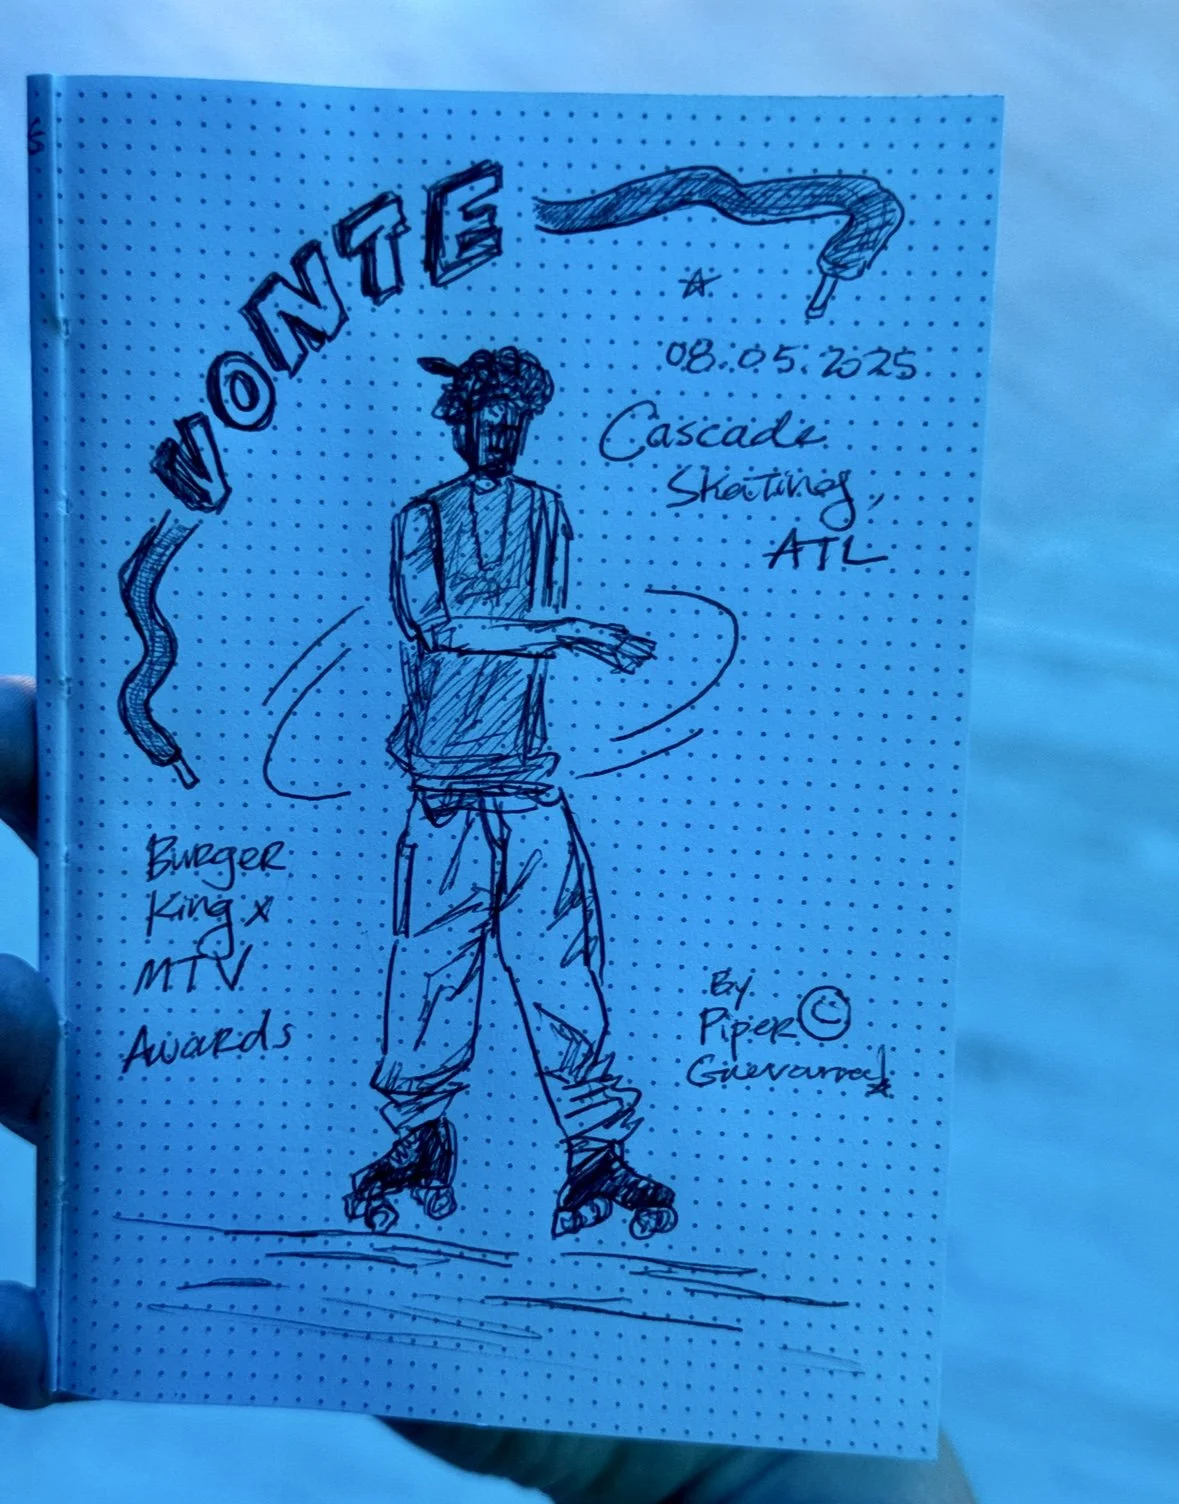 VONTE
08.05.2025
Cascade
Skating,
ATL
Burger
King x
MTV
Awards
By
Piper
Guevarra